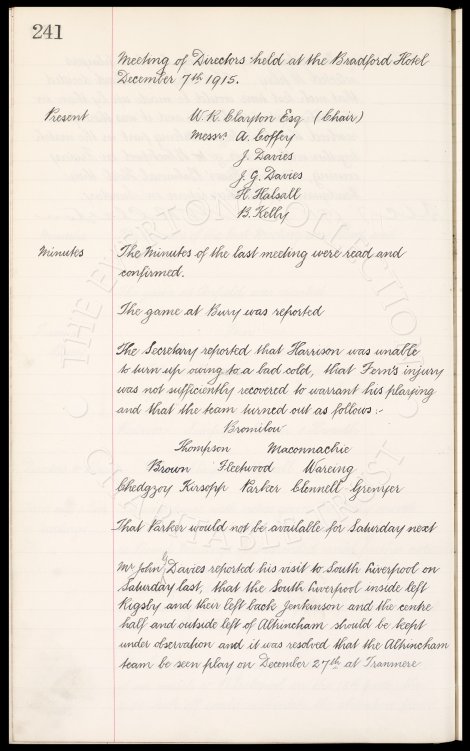 241
Meeting of Directors held at the Bradford Hotel
December 7th 1915.
Present W. R. Clayton Esq (Chair)
Messrs A. Coffey
J. Davies
J. G. Davies
H. Halsall
B. Kelly
Minutes The Minutes of the last meeting were read and
confirmed.
The game at Bury was reported
The Secretary reported that Harrison was unable
to turn up owing to a bad cold, that Fern's injury
was not sufficiently recovered to warrant his playing
and that the team turned out as follows:-
Bromilow
Thompson Maconnachie
Brown Fleetwood Wareing
Chedgzoy Kirsopp Parker Clennell Grenyer
That Parker would not be available for Saturday next
Mr John Davies reported his visit to South Liverpool on
Saturday last, that the South Liverpool inside left
Rigsby and their left back Jenkinson and the centre
half and outside left of Altrincham should be kept
under observation and it was resolved that the Altrincham
team be seen play on December 27th at Tranmere
THE EVERTON COLLECTION
CHARITABLE TRUST